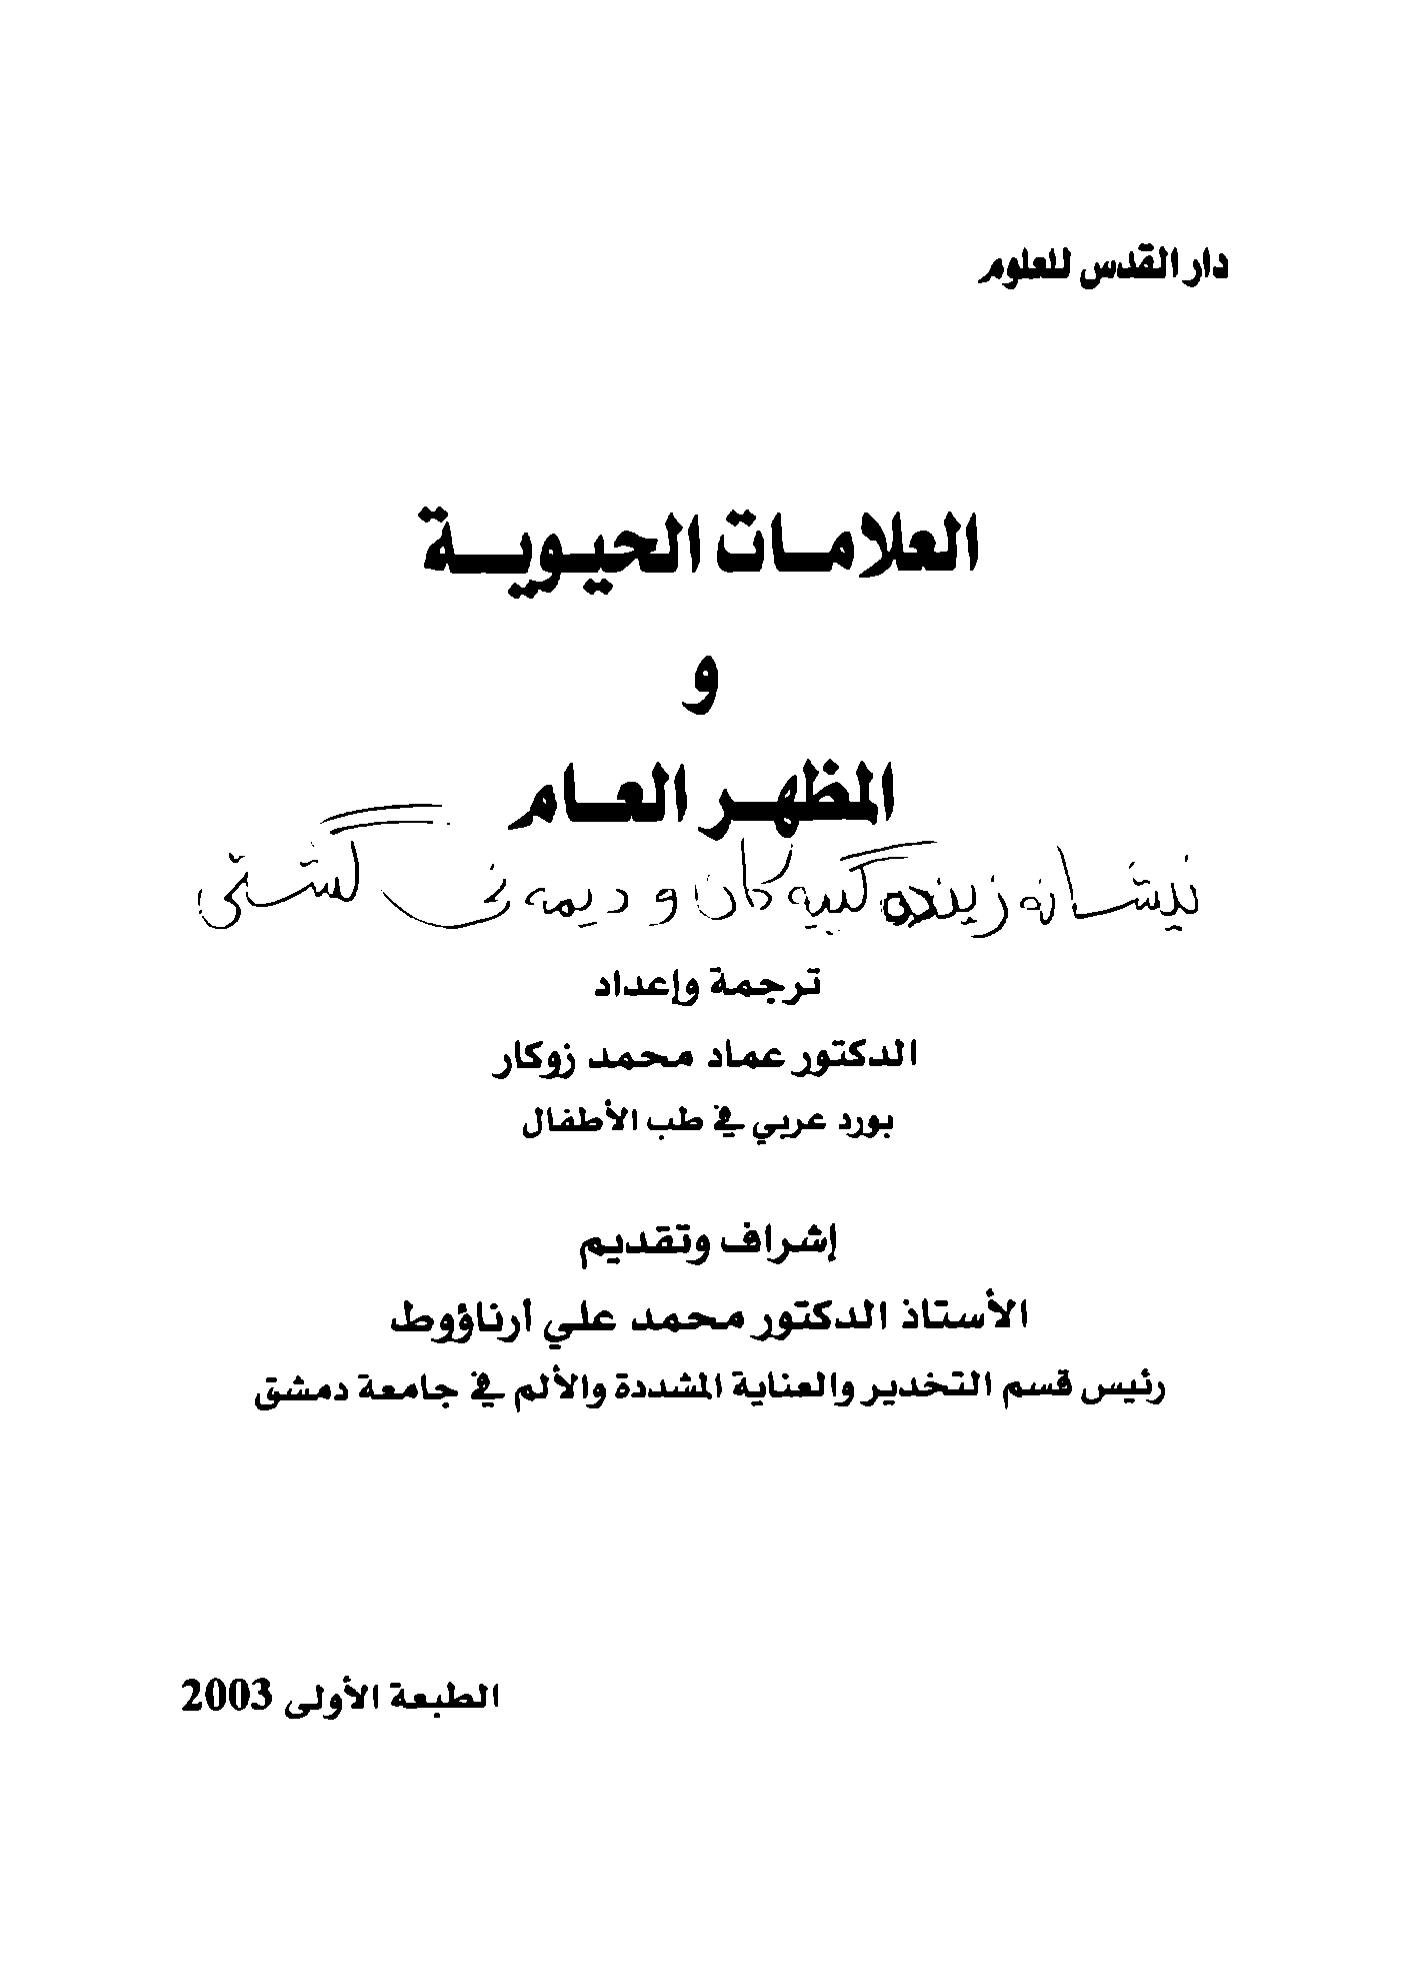 دار القدس للعلوم
العلامات الحيوية
و
المظهر العام
نیشانه زیندهگییهکان و دیمهنی گشتی
ترجمة وإعداد
الدكتور عماد محمد زوكار
بورد عربي في طب الأطفال
إشراف وتقديم
الأستاذ الدكتور محمد علي أرناؤوط
رئيس قسم التخدير والعناية المشددة والألم في جامعة دمشق
الطبعة الأولى 2003